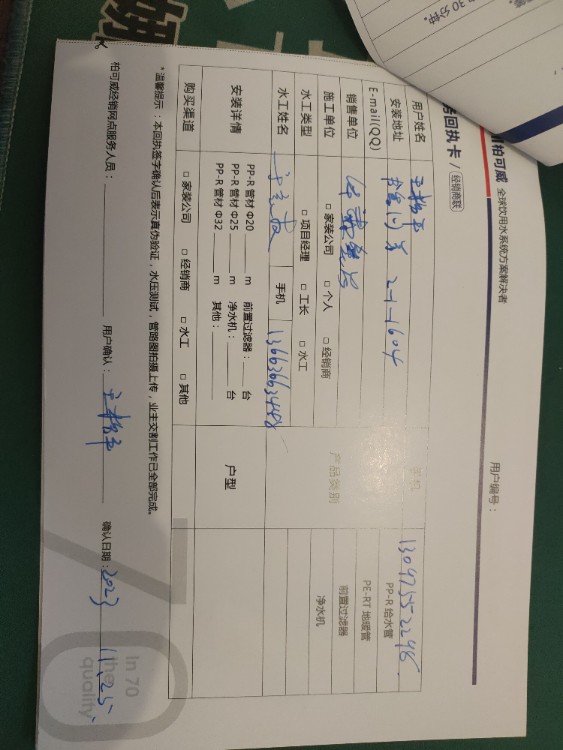 柏可威 全球饮用水系统方案解决者
回执卡 / 经销商联
用户编号：
用户姓名
手机 13097552248
安装地址 2-1-1604
E-mail(QQ)
销售单位
产品类别
PP-R 给水管
PE-RT 地暖管
前置过滤器
净水机
施工单位 □ 家装公司 □ 个人 □ 经销商
水工类型 □ 项目经理 □ 工长 □ 水工
水工姓名
手机
安装详情
PP-R 管材 Φ20 m 前置过滤器： 台
PP-R 管材 Φ25 m 净水机： 台
PP-R 管材 Φ32 m 其他：
户型
购买渠道 □ 家装公司 □ 经销商 □ 水工 □ 其他
*温馨提示：本回执签字确认后表示真伪验证，水压测试，管路图拍摄上传，业主交割工作已全部完成。
柏可威经销网点服务人员：
用户确认：
确认日期：2023 11.25
In 70
the
quality
30 分钟。